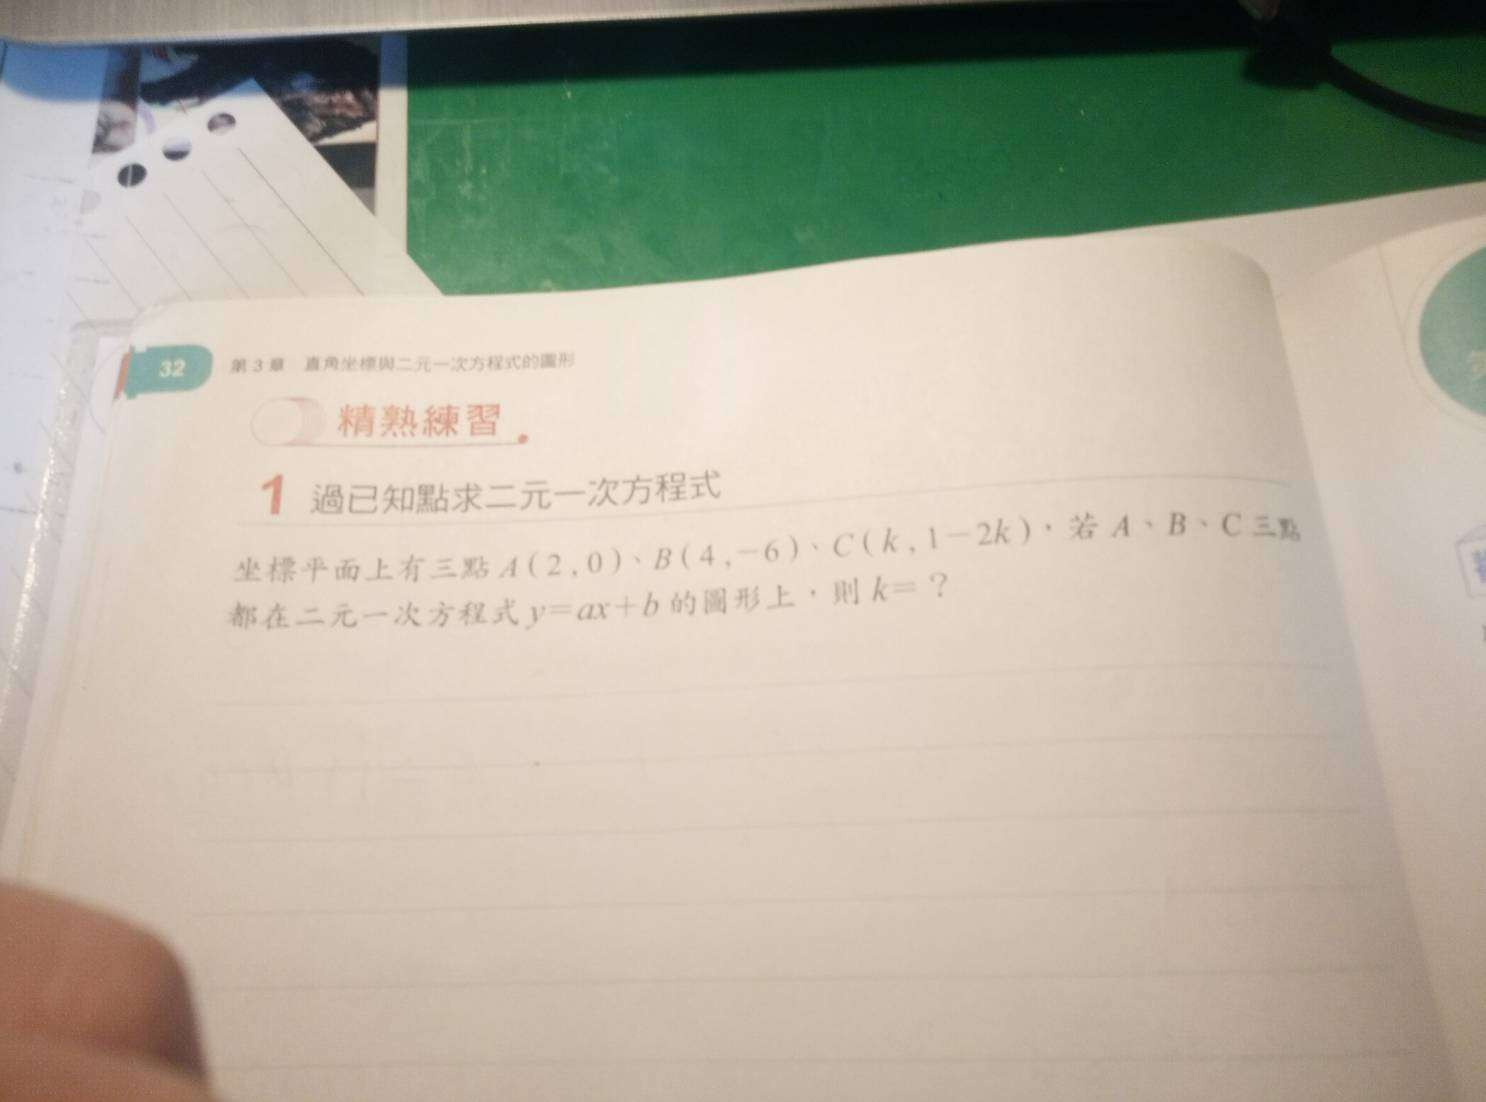 32 第3章 直角坐標與二元一次方程式的圖形
精熟練習
1 過已知點求二元一次方程式
坐標平面上有三點 A(2,0)、B(4,-6)、C(k,1-2k),若 A、B、C三點
都在二元一次方程式 y=ax+b 的圖形上,則 k=?